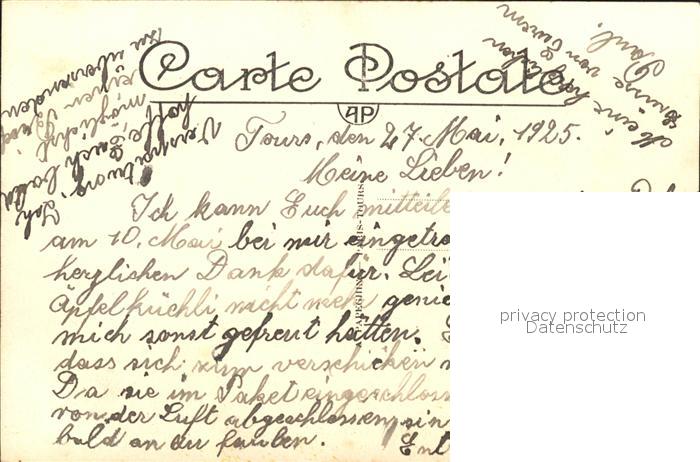 Carte Postale
AP
Tours, den 27. Mai, 1925.
Meine Lieben!
Ich kann Euch mitteile
am 10. Mai bei mir eingetro
herzlichen Dank dafür. Lei
Äpfelküchli nicht mehr genie
mich sonst gefreut hätten.
dass sich zum verschicken
Da sie im Paket eingeschloss
von der Luft abgeschlossen, sin
bald an zu faulen. Ent
Ich
hoffe, Euch bald
möglichst
einen
zu übersenden
Meine
Grüsse von Eurem
Paul.
privacy protection
Datenschutz